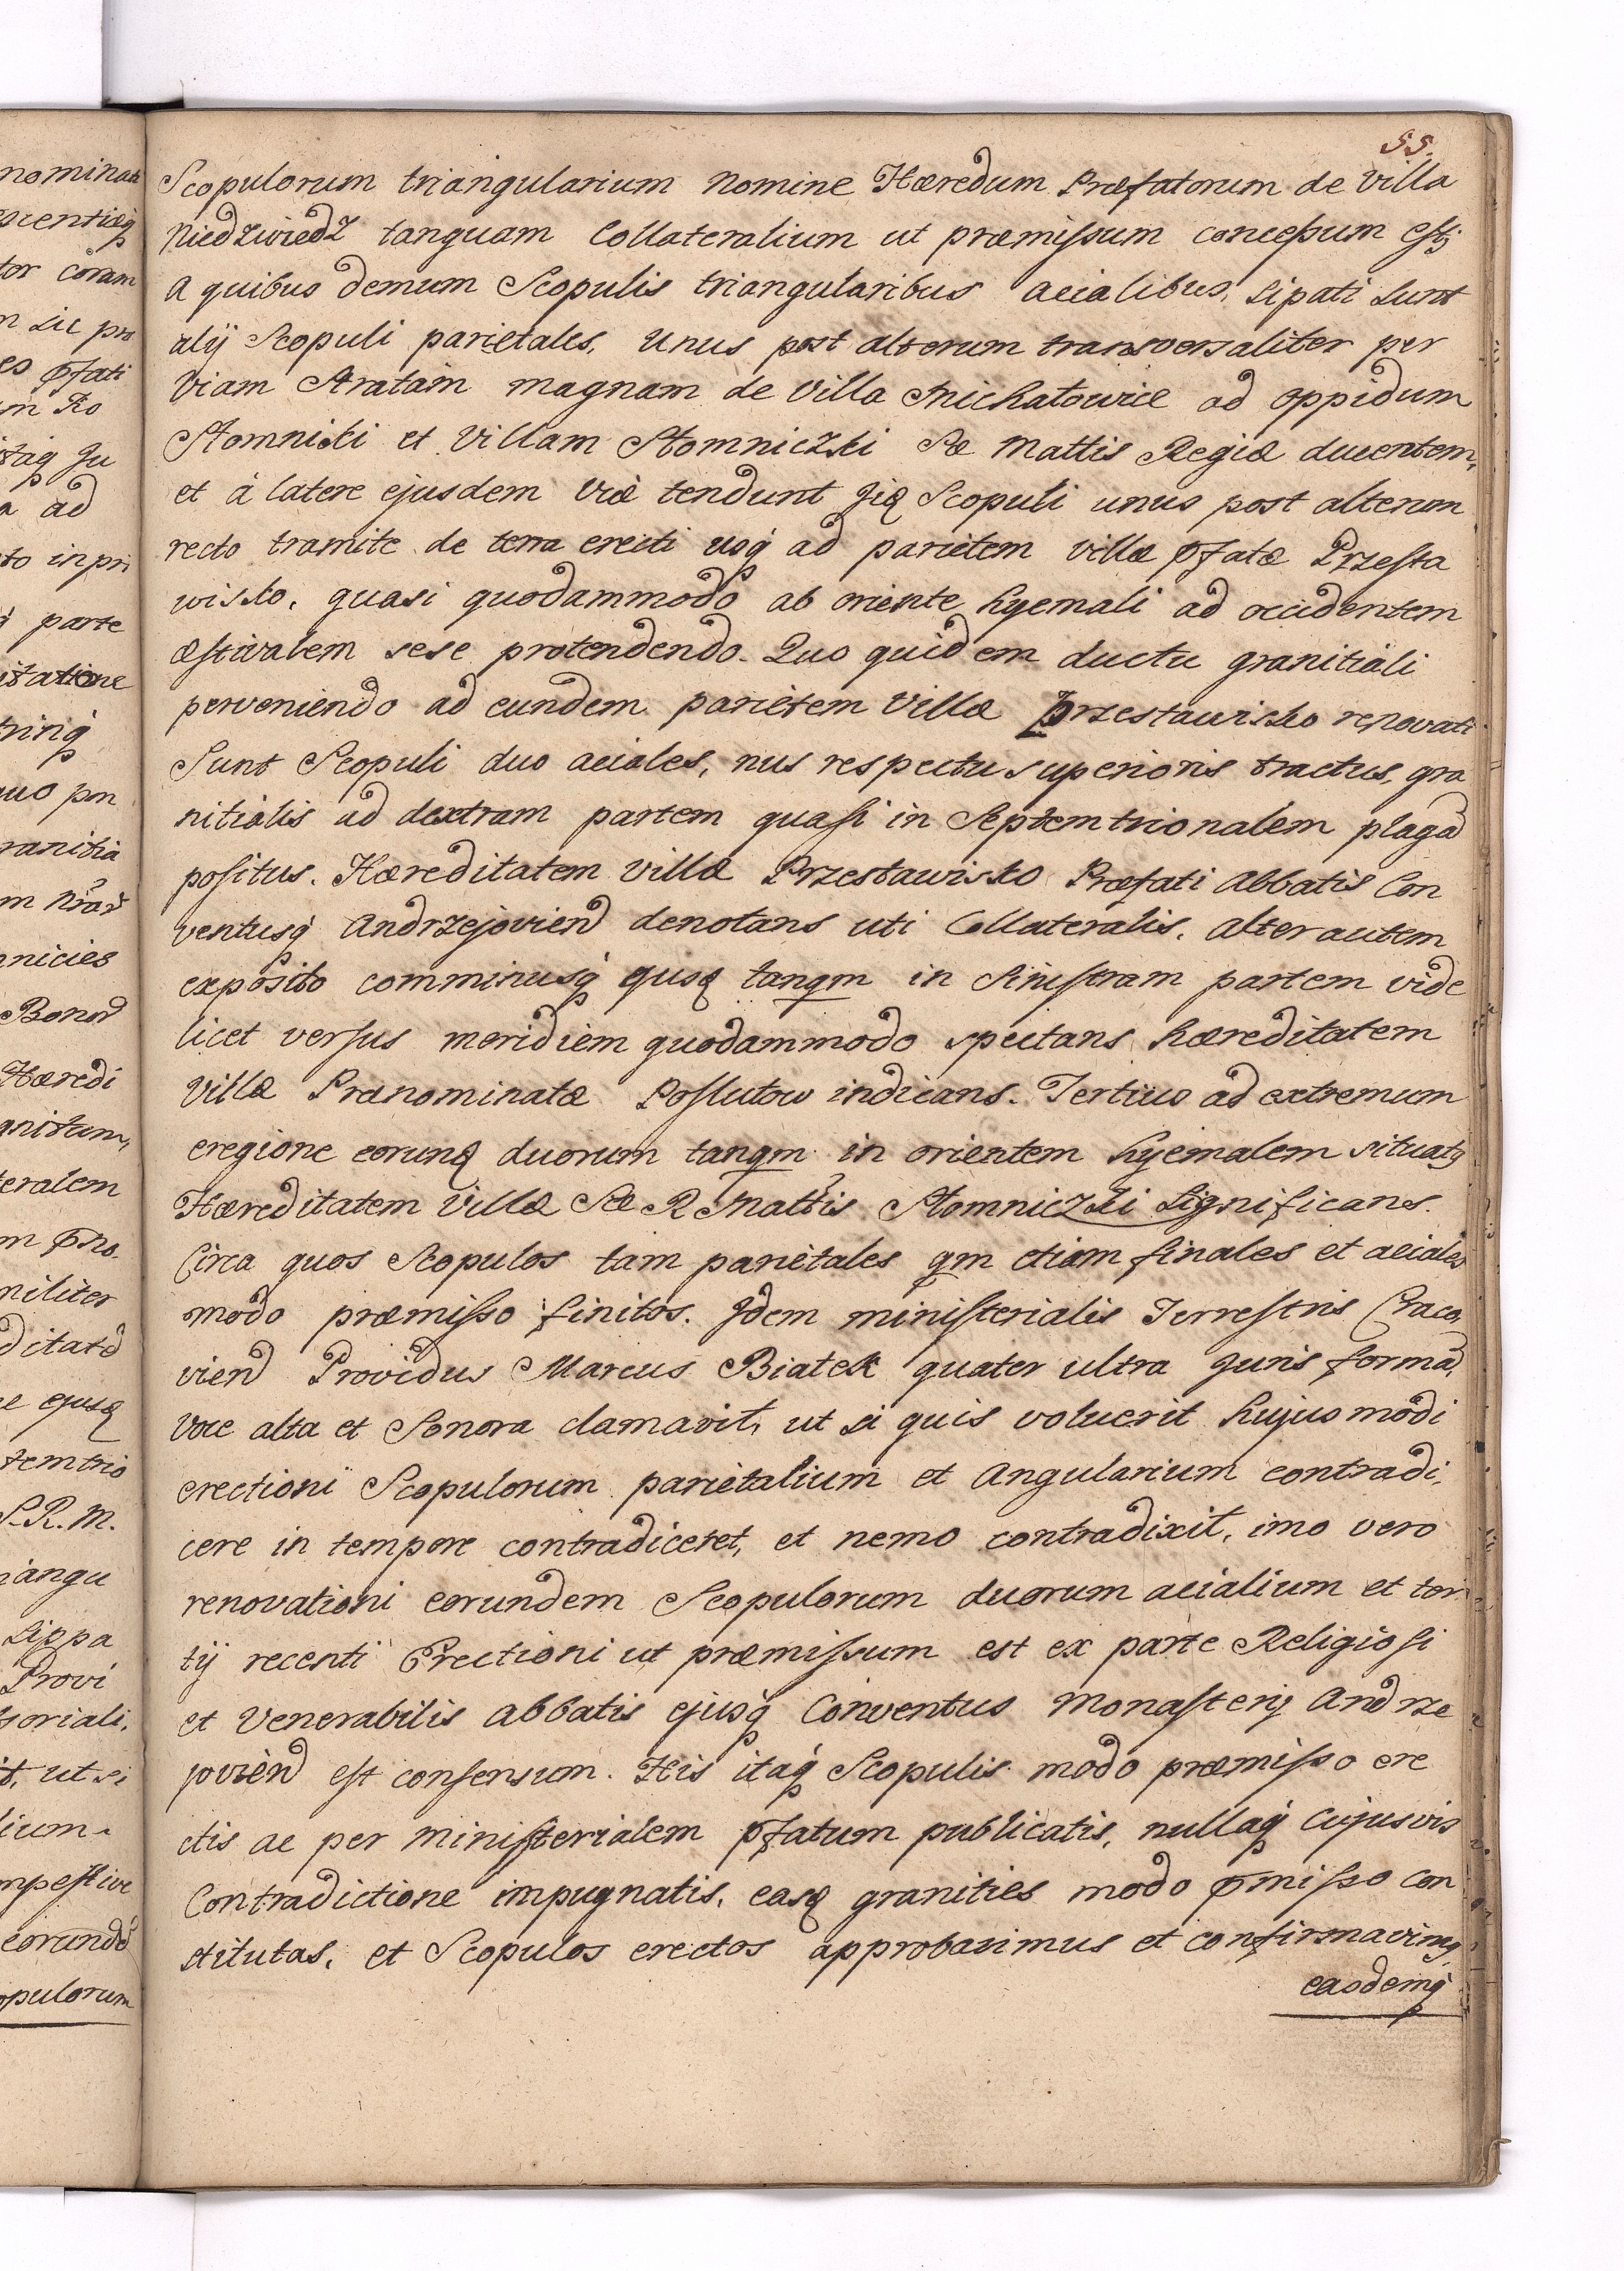 55.
Scopulorum triangularium nomine Hæredum Præfatorum de Villa
Niedzwiedz tanquam Collateralium ut præmissum concessum est;
A quibus demum Scopulis triangularibus acialibus, sipati sunt
alij Scopuli parietales, unus post alterum transversaliter per
Viam Stratam magnam de Villa Michałowice ad oppidum
Słomniki et Villam Słomniczki Sæ Mattis Regiæ ducentem,
et à latere ejusdem viæ tendunt ijq Scopuli unus post alterum
recto tramite de terra erecti usq ad parietem villæ pfatæ Przesta
wisko, quasi quodammodo ab oriente hyemali ad occidentem
æstivalem sese protendendo. Quo quidem ductu granitiali
perveniendo ad eundem parietem Villæ Przestawisko renovati
Sunt Scopuli duo aciales, nus respectu superioris tractus, gra
nitialis ad dextram partem quasi in Septemtrionalem plagā
positus. Hæreditatem villæ Przestawisko Præfati Abbatis Con
ventusq Andrzejovien denotans uti Collateralis. Alter autem
exposito comminusq ejusq tanqm in Sinistram partem vide
licet versus meridiem quodammodo spectans hæreditatem
Villæ Prænominatæ Poslutow indicans. Tertius ad extremum
eregione eorunq duorum tanqm in orientem hyemalem situatq
Hæreditatem Villæ Sæ R Mattis Słomniczki Significans.
Circa quos Scopulos tam parietales qm etiam finales et aciales
modo præmisso finitos. Idem ministerialis Terrestris Craco,
vien Providus Marcus Białek quater ultra juris formā,
voce alta et Sonora clamavit, ut si quis voluerit hujusmodi
erectioni Scopulorum parietalium et Angularium contradi,
cere in tempore contradiceret, et nemo contradixit, imo vero
renovationi eorundem Scopulorum duorum acialium et ter
tij recenti Erectioni ut præmissum est ex parte Religiosi
et Venerabilis Abbatis ejusq Conventus Monasterij Andrze
jovien est consensum. His itaq Scopulis modo præmisso ere
ctis ac per ministerialem pfatum publicatis, nullaq cujusvis
Contradictione impugnatis, easq granities modo pmisso con
stitutas, et Scopulos erectos approbavimus et confirmavimq
easdemq